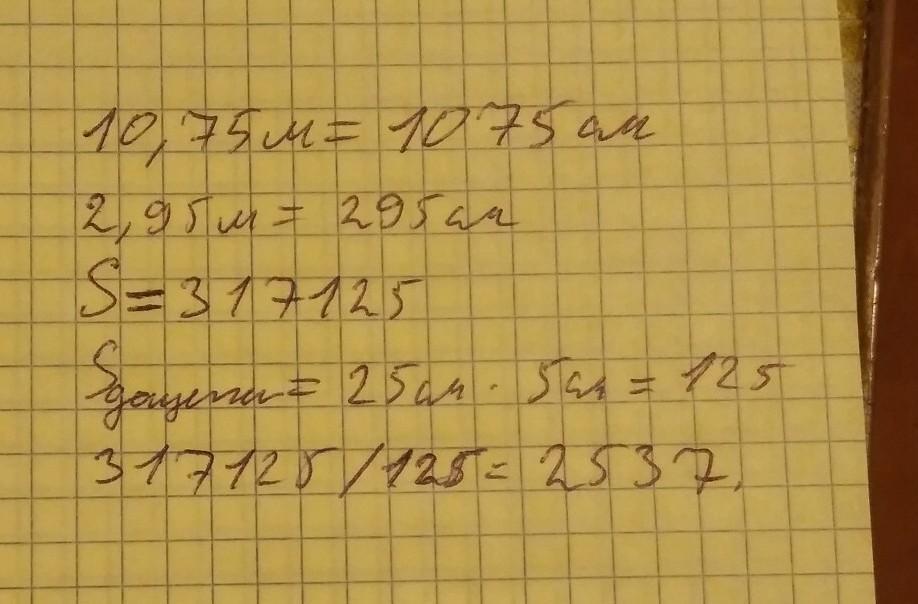 10,75м = 1075 см
2,95м = 295 см
S = 317125
Sдощечки = 25 см · 5 см = 125
317125 / 125 = 2537.